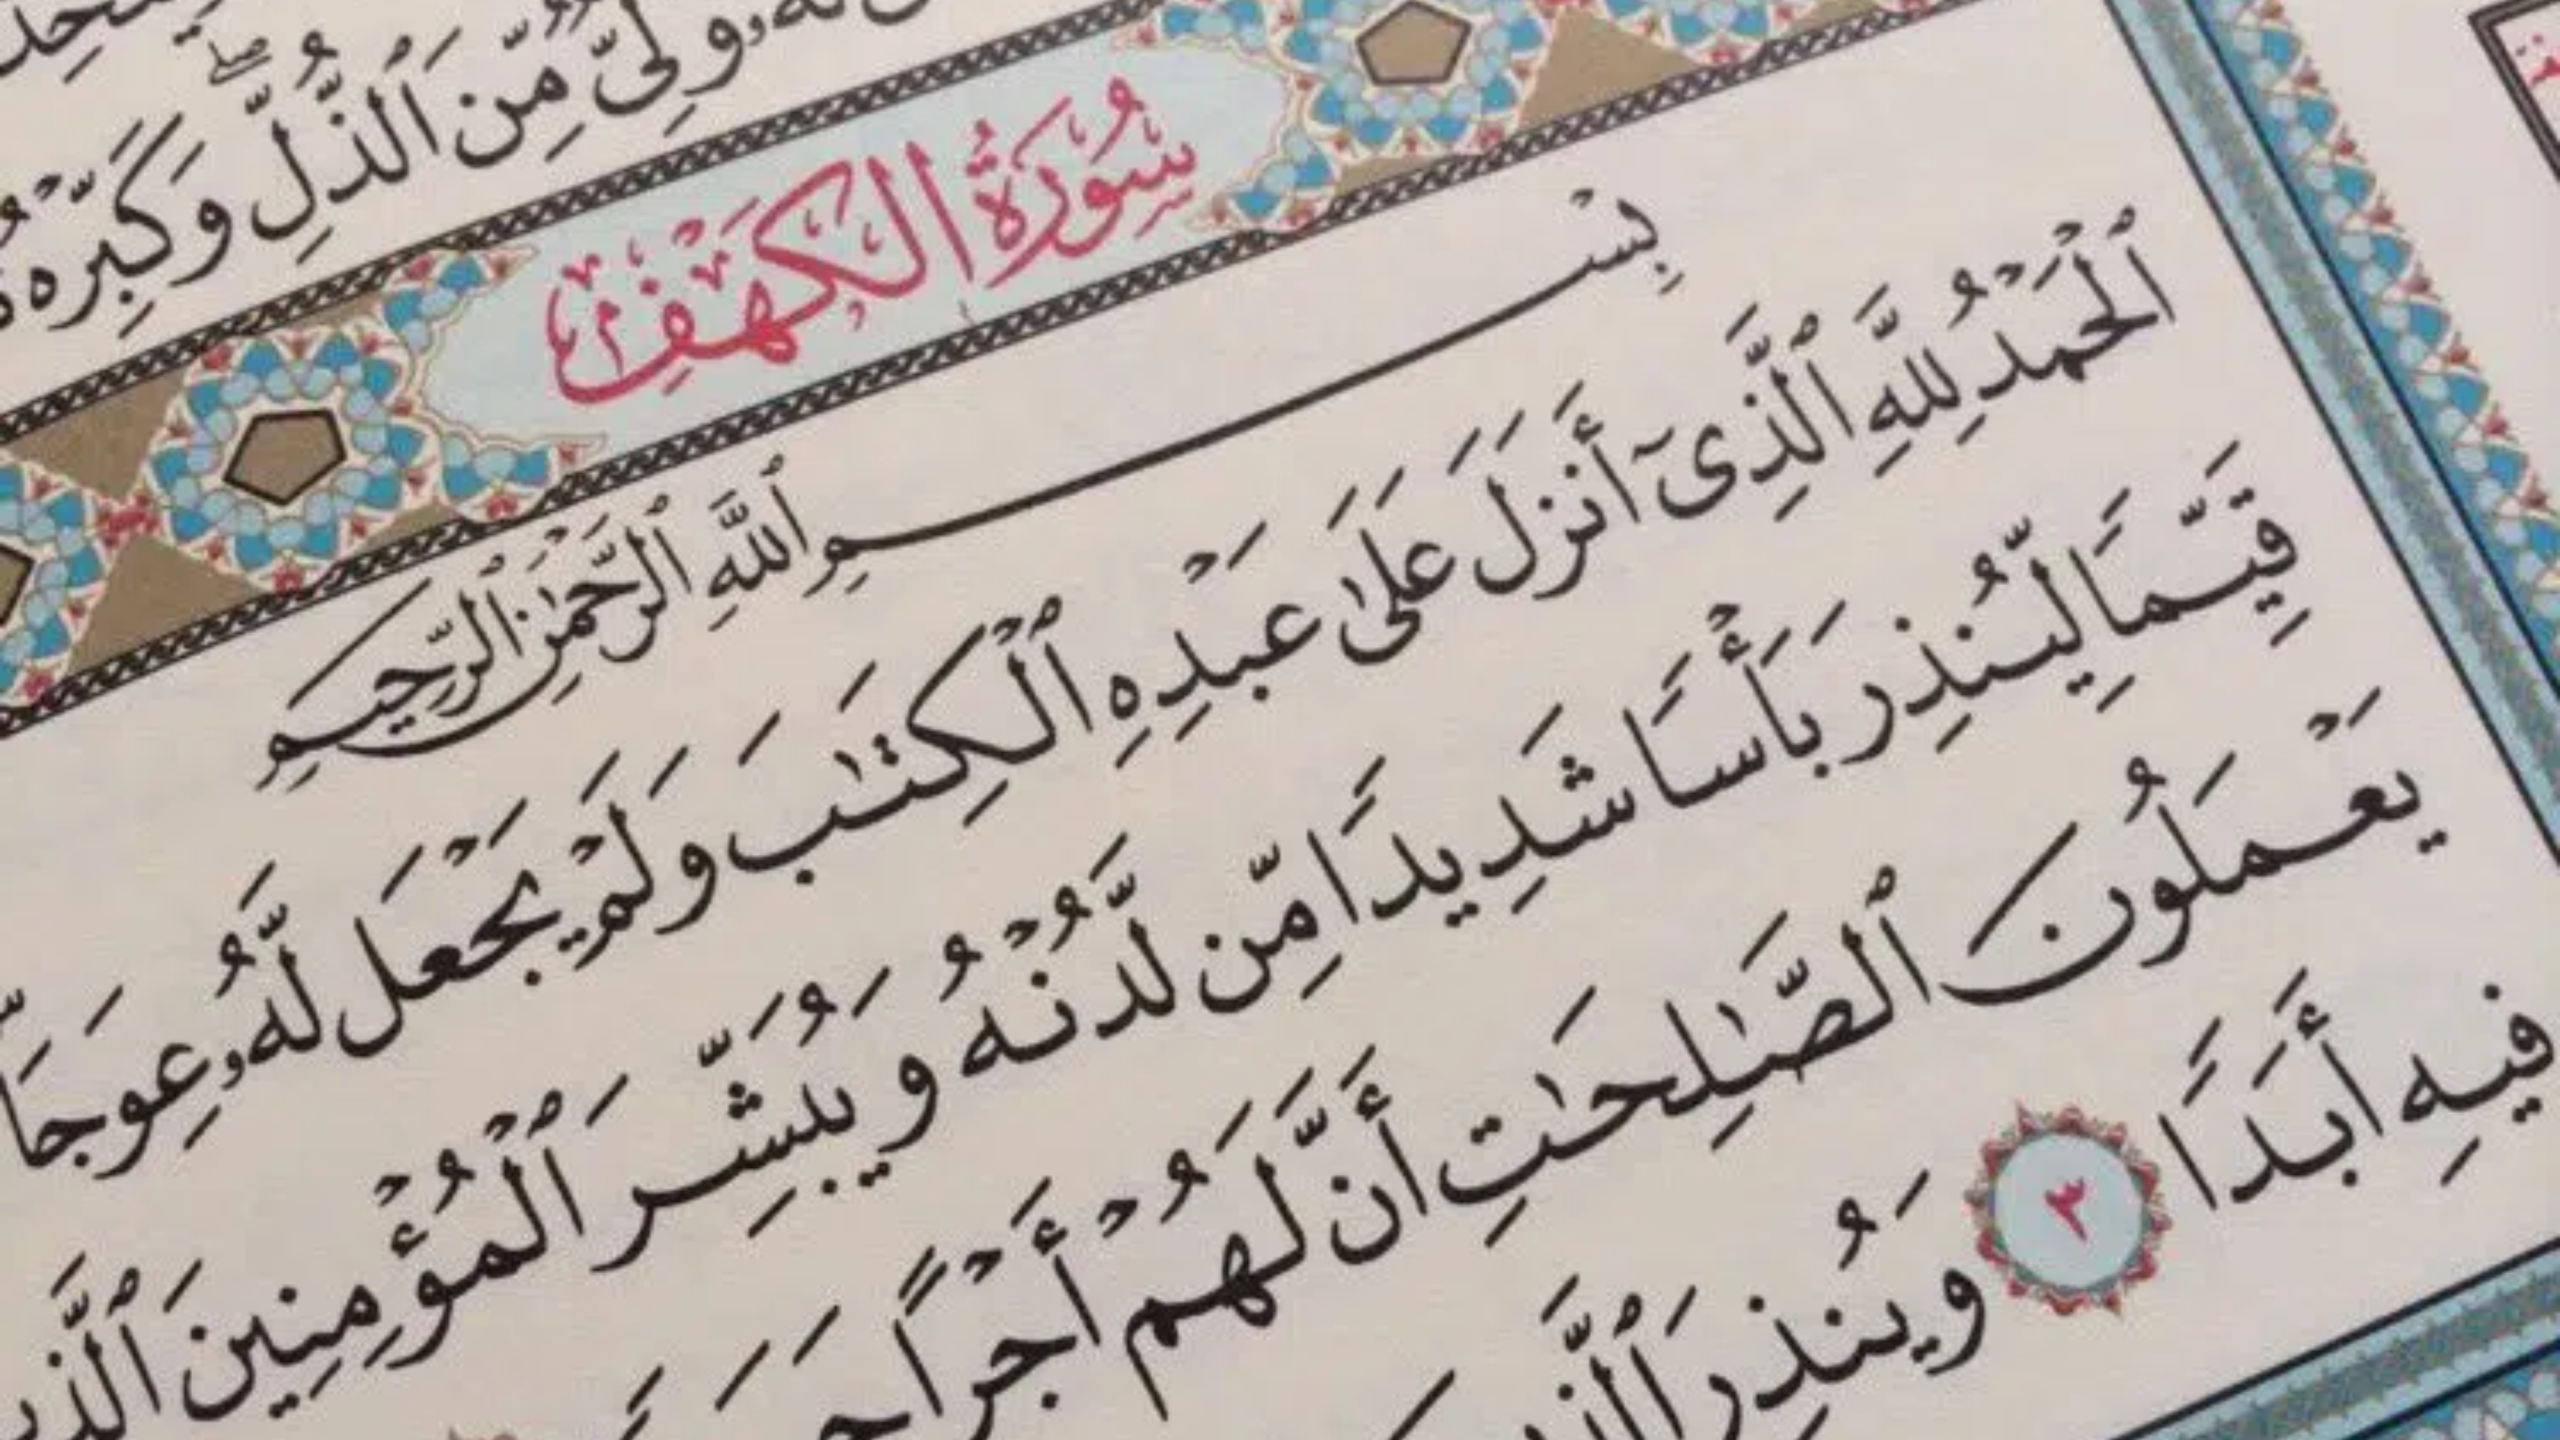 وَلِيٌّ مِّنَ ٱلذُّلِّۖ وَكَبِّرْهُ
سُورَةُ الكَهْفِ
بِسْمِ ٱللَّهِ ٱلرَّحْمَٰنِ ٱلرَّحِيمِ
ٱلْحَمْدُ لِلَّهِ ٱلَّذِىٓ أَنزَلَ عَلَىٰ عَبْدِهِ ٱلْكِتَٰبَ وَلَمْ يَجْعَل لَّهُۥ عِوَجَا
قَيِّمًا لِّيُنذِرَ بَأْسًا شَدِيدًا مِّن لَّدُنْهُ وَيُبَشِّرَ ٱلْمُؤْمِنِينَ
يَعْمَلُونَ ٱلصَّٰلِحَٰتِ أَنَّ لَهُمْ أَجْرًا
فِيهِ أَبَدًا ٣ وَيُنذِرَ